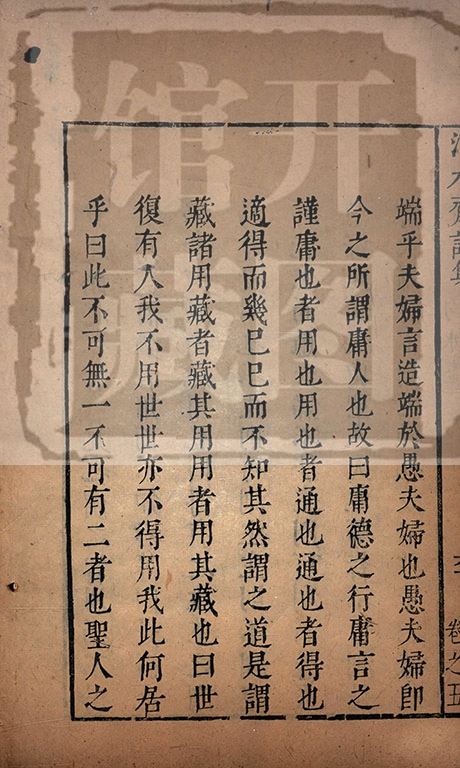 端乎夫婦言造端於愚夫婦也愚夫婦即
今之所謂庸人也故曰庸德之行庸言之
謹庸也者用也用也者通也通也者得也
適得而幾巳巳而不知其然謂之道是謂
藏諸用藏者藏其用用者用其藏也曰世
復有人我不用世世亦不得用我此何居
乎曰此不可無一不可有二者也聖人之
卷之五
开图
馆藏